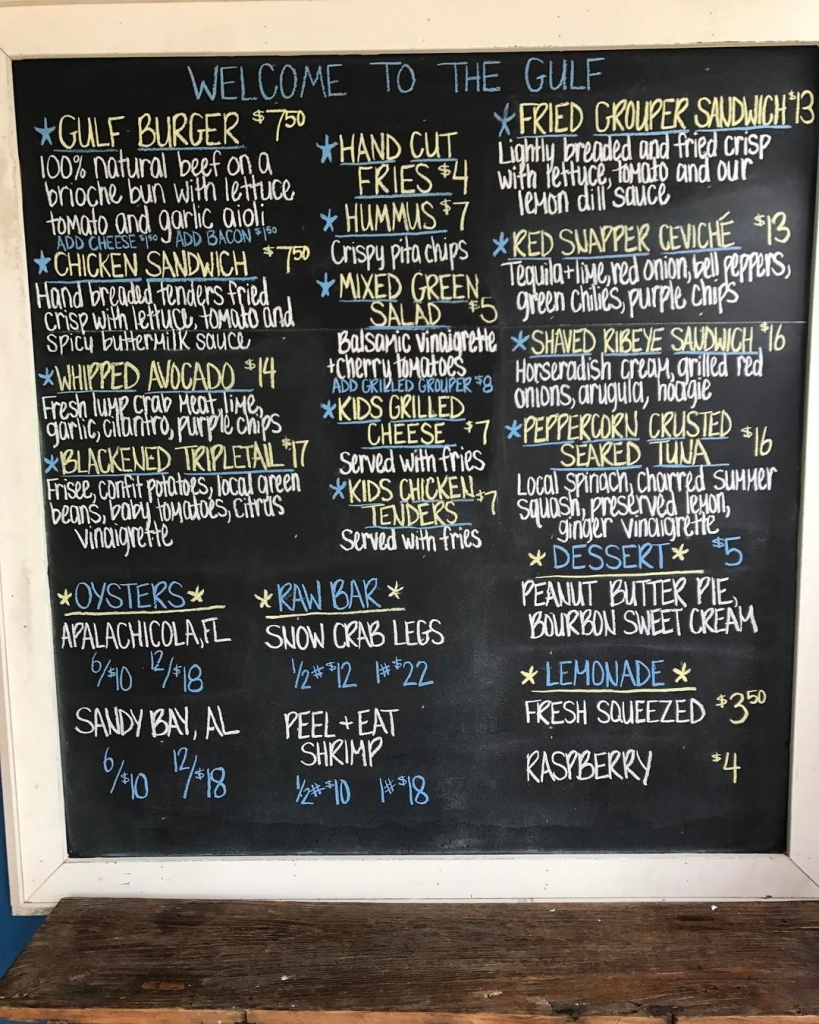 WELCOME TO THE GULF
GULF BURGER $7.50
100% natural beef on a
brioche bun with lettuce
tomato and garlic aioli
ADD CHEESE $1.50 ADD BACON $1.50
CHICKEN SANDWICH $7.50
Hand breaded tenders fried
crisp with lettuce, tomato and
spicy buttermilk sauce
WHIPPED AVOCADO $14
Fresh lump crab meat, lime,
garlic, cilantro, purple chips
BLACKENED TRIPLETAIL $17
Frisee, confit potatoes, local green
beans, baby tomatoes, citrus
vinaigrette
HAND CUT
FRIES $4
HUMMUS $7
Crispy pita chips
MIXED GREEN
SALAD $5
Balsamic vinaigrette
+cherry tomatoes
ADD GRILLED GROUPER $8
KIDS GRILLED
CHEESE $7
Served with fries
KIDS CHICKEN
TENDERS $7
Served with fries
FRIED GROUPER SANDWICH $13
Lightly breaded and fried crisp
with lettuce, tomato and our
lemon dill sauce
RED SNAPPER CEVICHÉ $13
Tequila+lime, red onion, bell peppers,
green chilies, purple chips
SHAVED RIBEYE SANDWICH $16
Horseradish cream, grilled red
onions, arugula, hoagie
PEPPERCORN CRUSTED
SEARED TUNA $16
Local spinach, charred summer
squash, preserved lemon,
ginger vinaigrette
OYSTERS
APALACHICOLA, FL
6/$10 12/$18
SANDY BAY, AL
6/$10 12/$18
RAW BAR
SNOW CRAB LEGS
1/2# $12 1# $22
PEEL + EAT
SHRIMP
1/2# $10 1# $18
DESSERT $5
PEANUT BUTTER PIE,
BOURBON SWEET CREAM
LEMONADE
FRESH SQUEEZED $3.50
RASPBERRY $4